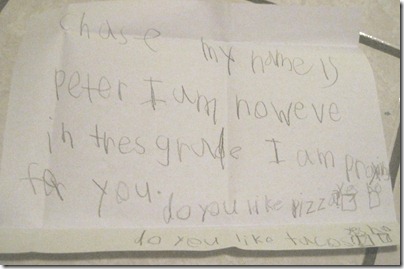 chase my name is
peter I am howeve
in thes grade I am praying
for you.
do you like pizza
do you like tacos